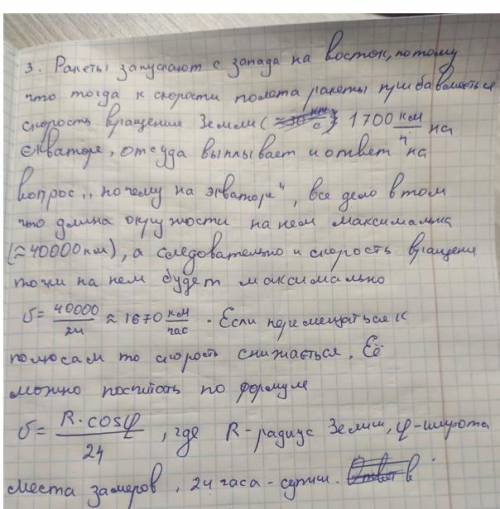 3. Ракеты запускают с запада на восток, потому
что тогда к скорости полета ракеты прибавляется
скорость вращения Земли ( 1700 км/ч на
экваторе, отсюда выплывает и ответ на
вопрос „почему на экваторе", все дело в том
что длина окружности на нем максимальна
(≈40000 км), а следовательно и скорость вращени
точки на нем будет максимально
υ = 40000/24 ≈ 1670 км/час. Если перемещаться к
полюсам то скорость снижається. Её
можно посчитать по формуле
υ = R·cosφ/24, где R-радиус Земли, φ-широта
места замеров, 24 часа-сутки. в